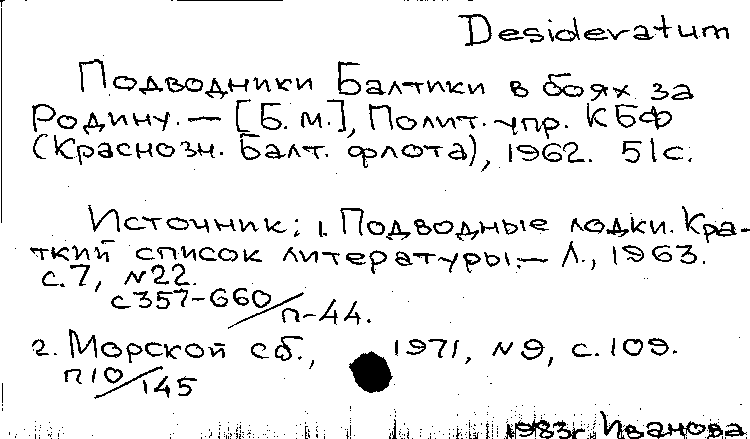 Desideratum
Подводники Балтики в боях за
Родину. — [Б. м.], Полит. упр. КБФ
(Краснозн. Балт. флота), 1962. 51с.
Источник: 1. Подводные лодки. Кра-
ткий список литературы. — Л., 1963.
с. 7, №22.
с357-660/п-44.
2. Морской сб., 1971, №9, с. 109.
п10/145
1983г. Иванова